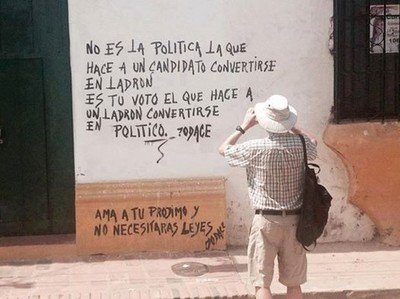 NO ES LA POLITICA LA QUE
HACE A UN CANDIDATO CONVERTIRSE
EN LADRON
ES TU VOTO EL QUE HACE A
UN LADRON CONVERTIRSE
EN POLITICO. JODACE
AMA A TU PROXIMO Y
NO NECESITARAS LEYES